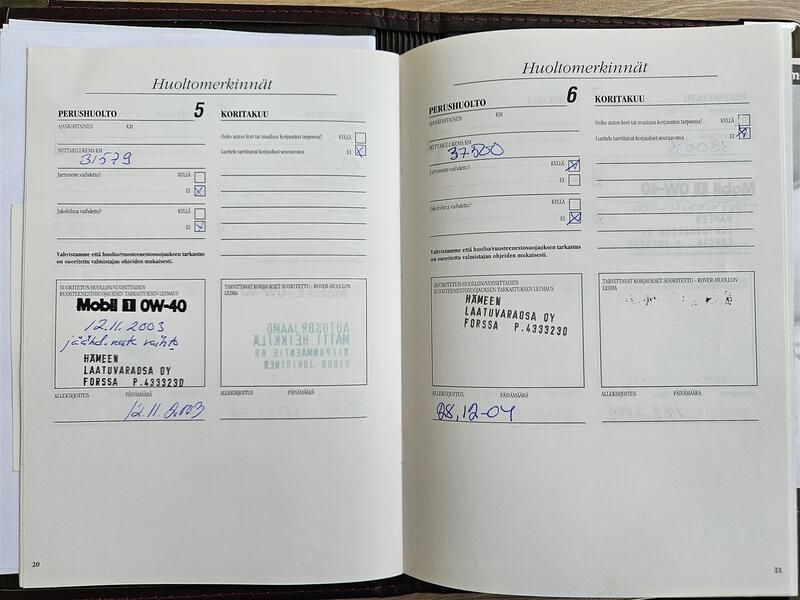 Huoltomerkinnät
PERUSHUOLTO 5
AJANKOHTAINEN KM
MITTARILUKEMA KM
31579
Jarruneste vaihdettu? KYLLÄ
EI X
Jakohihna vaihdettu? KYLLÄ
EI X
Vahvistamme että huolto/ruosteenestosuojauksen tarkastus
on suoritettu valmistajan ohjeiden mukaisesti.
SUORITETUN HUOLLON/VUOSITTAISEN
RUOSTEENESTOSUOJAUKSEN TARKASTUKSEN LEIMAUS
Mobil 1 0W-40
12.11.2003
jäähd.neste vaihto
HÄMEEN
LAATUVARAOSA OY
FORSSA P.4333230
ALLEKIRJOITUS PÄIVÄMÄÄRÄ
12.11.2003
KORITAKUU
Onko auton kori tai maalaus korjausten tarpeessa? KYLLÄ
Luettele tarvittavat korjaukset seuraavassa EI X
TARVITTAVAT KORJAUKSET SUORITETTU – ROVER-HUOLLON
LEIMA
AUTOKORJAAMO
MATTI HEIKKILÄ
31600 JOKIOINEN
ALLEKIRJOITUS PÄIVÄMÄÄRÄ
20
Huoltomerkinnät
PERUSHUOLTO 6
AJANKOHTAINEN KM
MITTARILUKEMA KM
37500
Jarruneste vaihdettu? KYLLÄ X
EI
Jakohihna vaihdettu? KYLLÄ
EI X
Vahvistamme että huolto/ruosteenestosuojauksen tarkastus
on suoritettu valmistajan ohjeiden mukaisesti.
SUORITETUN HUOLLON/VUOSITTAISEN
RUOSTEENESTOSUOJAUKSEN TARKASTUKSEN LEIMAUS
HÄMEEN
LAATUVARAOSA OY
FORSSA P.4333230
ALLEKIRJOITUS PÄIVÄMÄÄRÄ
28.12-04
KORITAKUU
Onko auton kori tai maalaus korjausten tarpeessa? KYLLÄ
Luettele tarvittavat korjaukset seuraavassa EI X
TARVITTAVAT KORJAUKSET SUORITETTU – ROVER-HUOLLON
LEIMA
ALLEKIRJOITUS PÄIVÄMÄÄRÄ
21